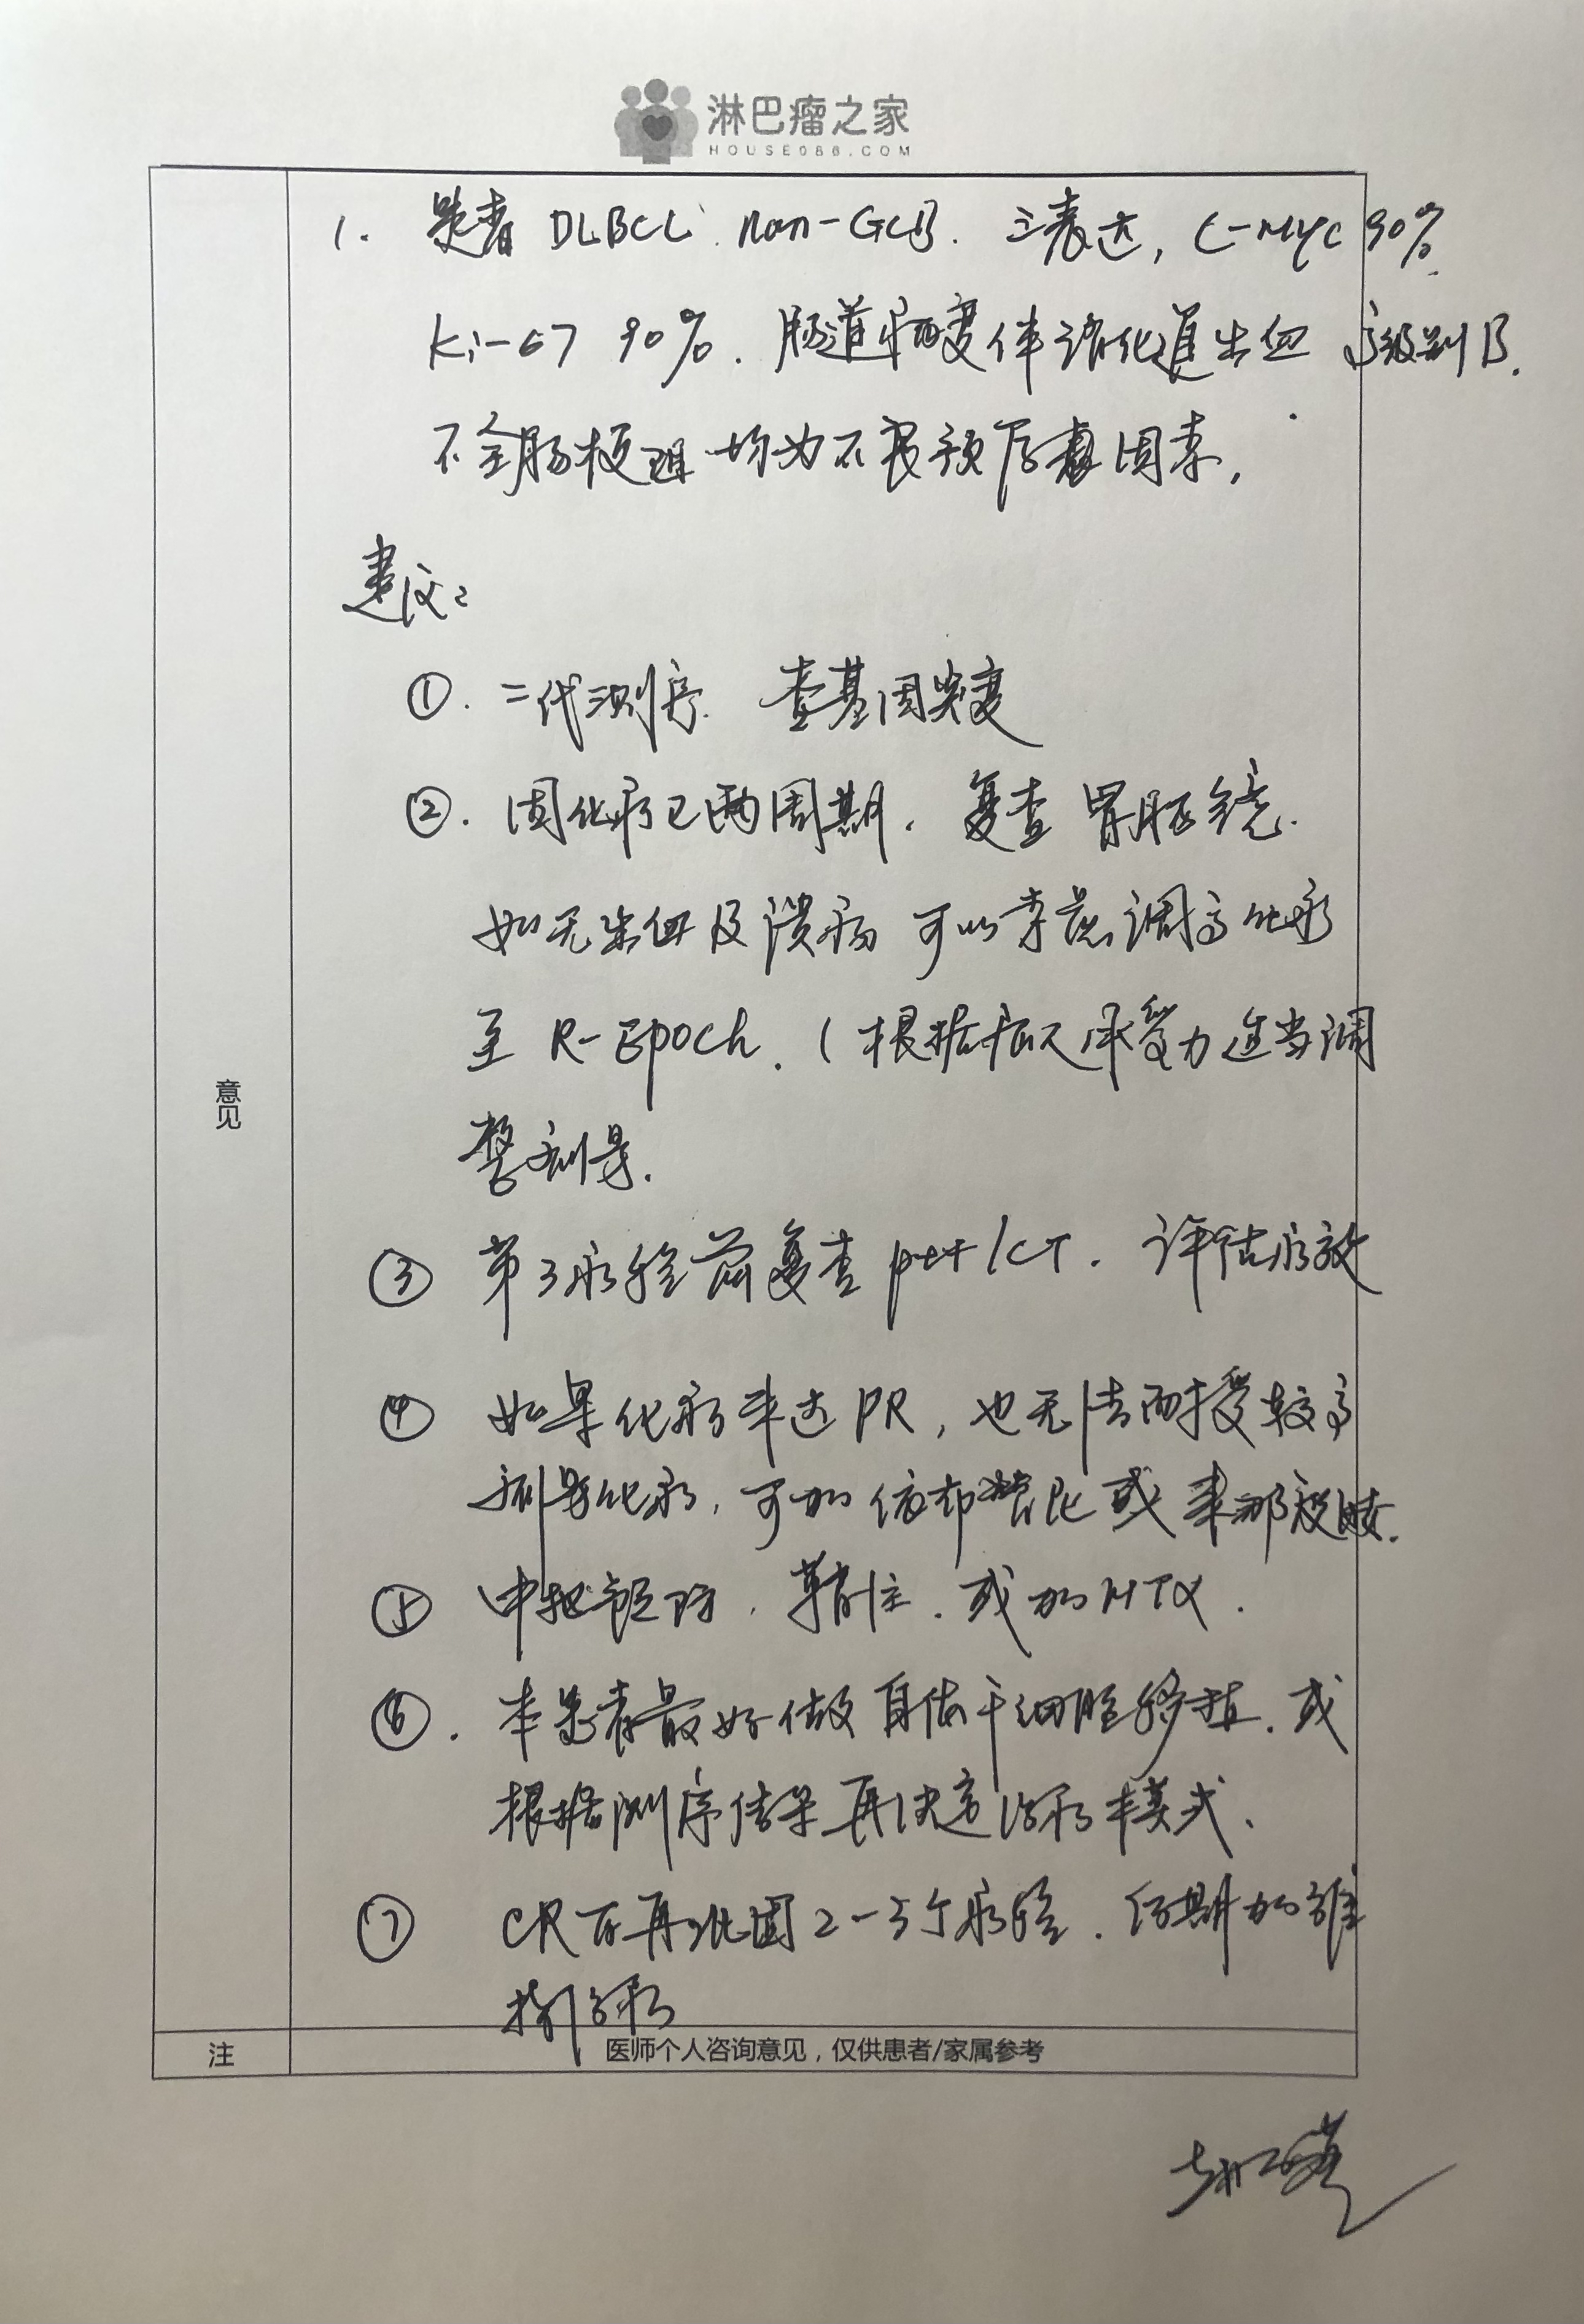 淋巴瘤之家
HOUSE086.COM
1. 患者 DLBCL. non-GCB. 三表达, C-Myc 90%.
Ki-67 90%. 肠道病变伴消化道出血 高级别B.
不全肠梗阻 均为不良预后因素,
建议:
①. 二代测序. 查基因突变
②. 因化疗已两周期. 复查 胃肠镜.
如无出血及溃疡 可以考虑调高化疗
至 R-Epoch. (根据病人承受力适当调
整剂量.
③ 第3疗程前复查 pet/CT. 评估疗效
④ 如果化疗未达PR, 也无法耐受较高
剂量化疗, 可加 依布替尼 或 来那度胺.
⑤ 中枢预防, 鞘注. 或加MTX.
⑥. 本患者最好做 自体干细胞移植. 或
根据测序结果再决定治疗模式.
⑦ CR后再巩固2-3个疗程. 后期加维
持治疗
意见
注
医师个人咨询意见，仅供患者/家属参考